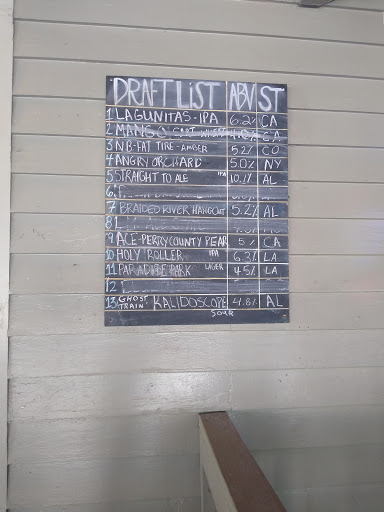 DRAFT LIST ABV ST
1 LAGUNITAS - IPA 6.2% CA
2 MANGO CART WHEAT
3 NB-FAT TIRE - AMBER 5.2% CO
4 ANGRY ORCHARD 5.0% NY
5 STRAIGHT TO ALE IPA 10.1% AL
6
7 BRAIDED RIVER HANGOUT 5.2% AL
8
9 ACE-PERRY COUNTY PEAR 5% CA
10 HOLY ROLLER IPA 6.3% LA
11 PARADISE PARK LAGER 4.5% LA
12
13 GHOST TRAIN KALIDOSCOPE 4.8% AL
SOUR